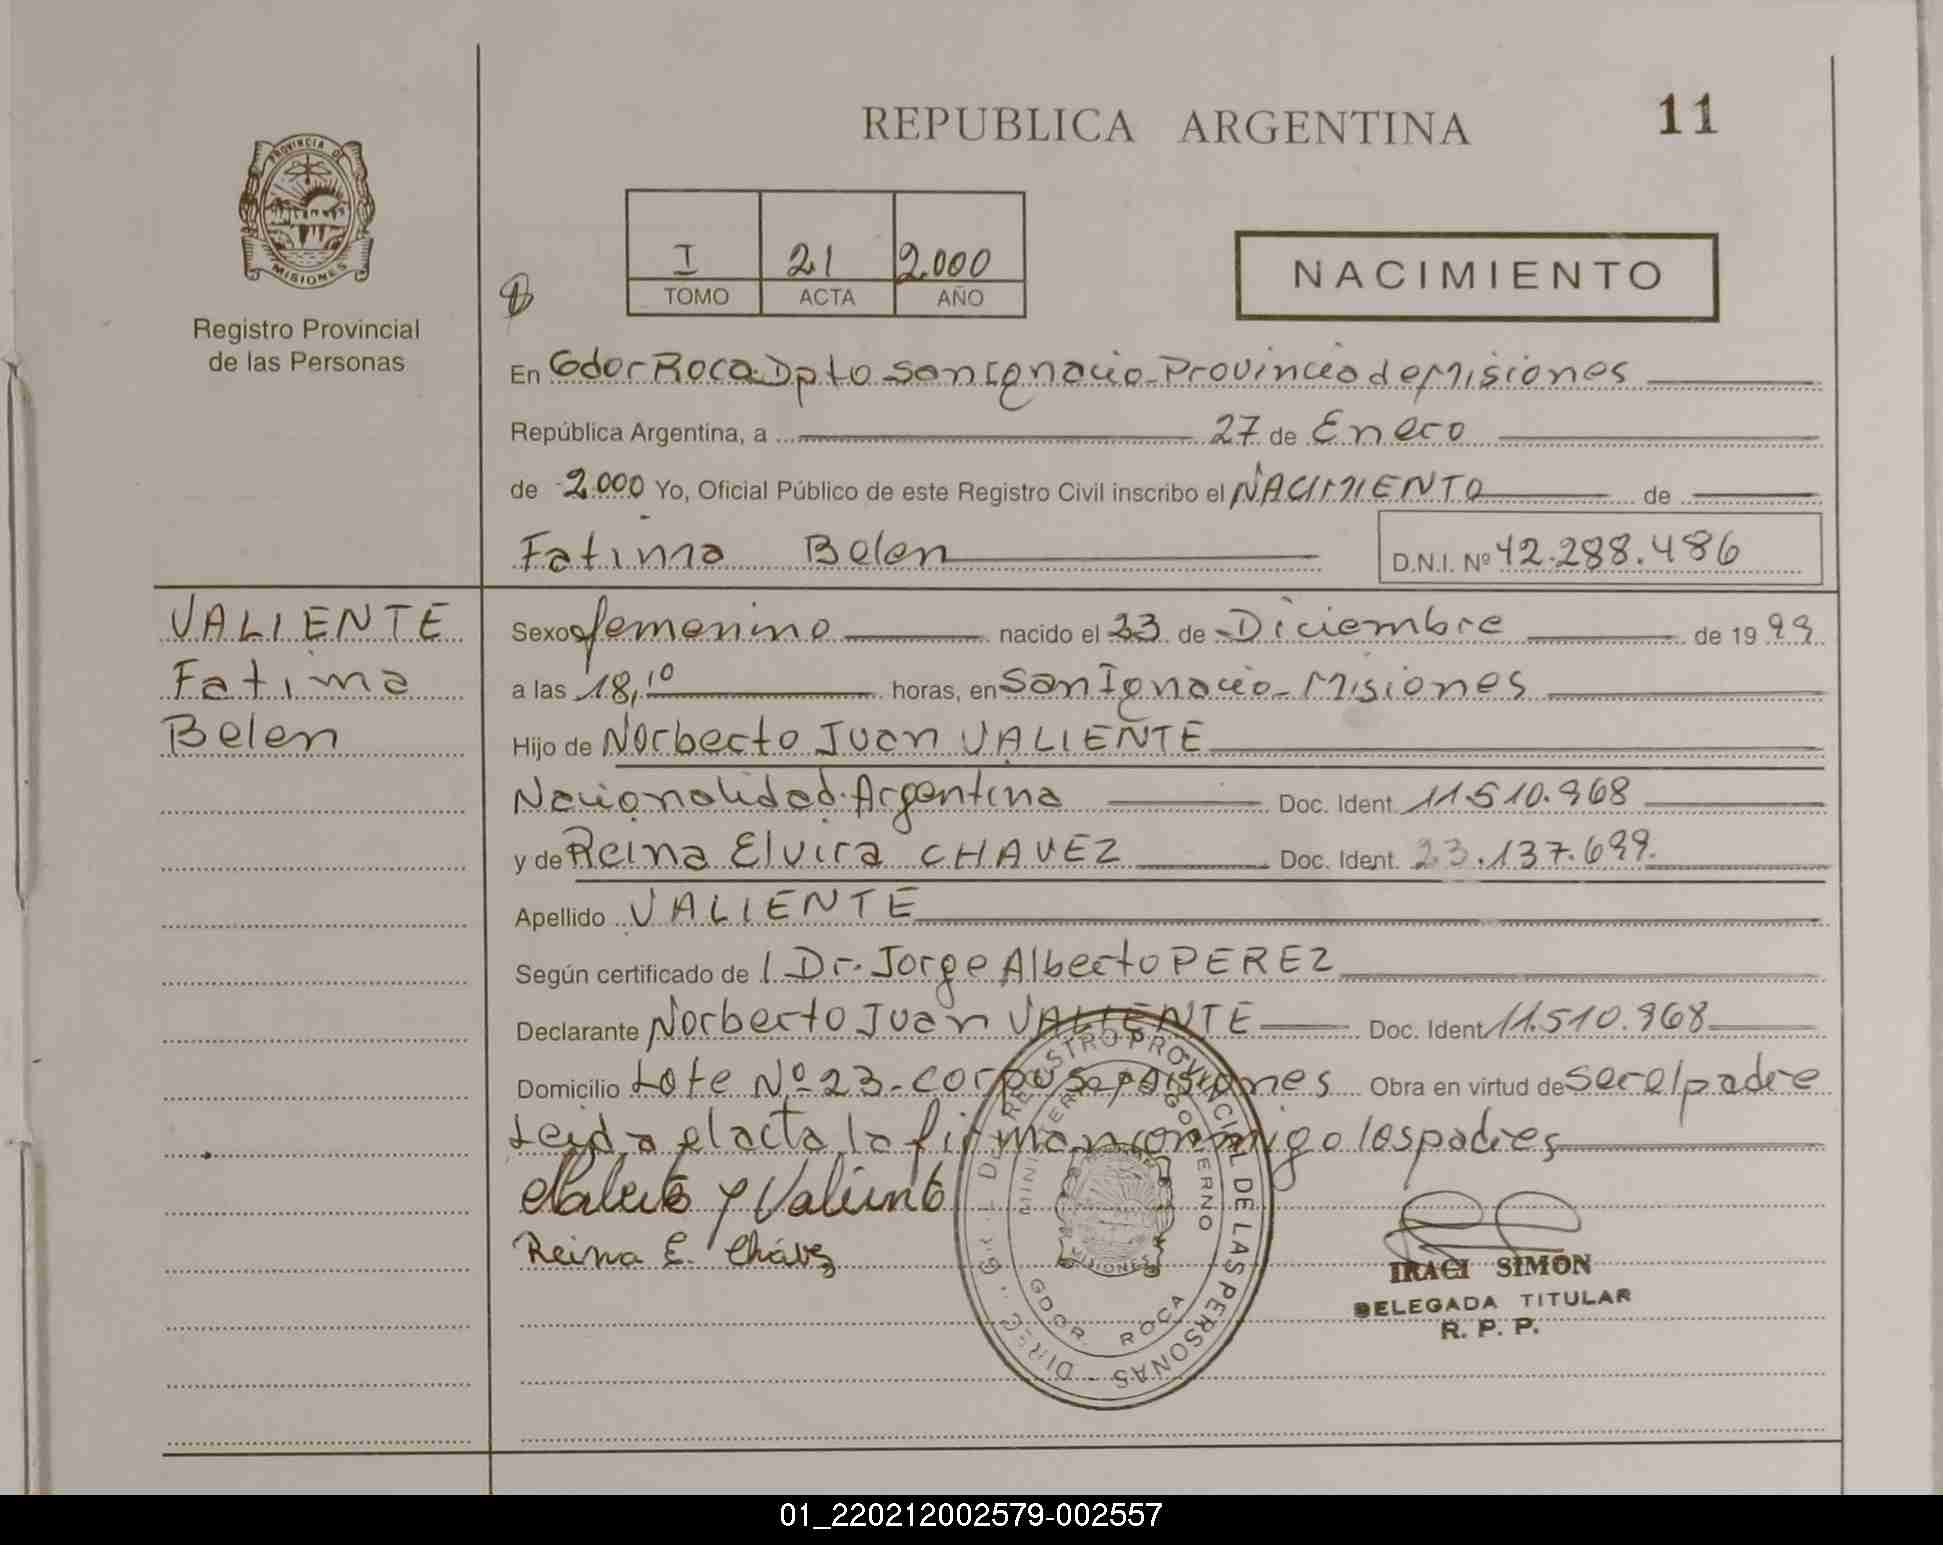 REPUBLICA ARGENTINA
11
PROVINCIA DE
MISIONES
Registro Provincial
de las Personas
I 21 2.000
TOMO ACTA AÑO
NACIMIENTO
En Gdor Roca Dpto San Ignacio - Provincia de Misiones
República Argentina, a 27 de Enero
de 2.000 Yo, Oficial Público de este Registro Civil inscribo el NACIMIENTO de
Fatima Belen D.N.I. Nº 42.288.486
VALIENTE
Fatima
Belen
Sexo femenino nacido el 23 de Diciembre de 1999
a las 18,10 horas, en San Ignacio - Misiones
Hijo de Norberto Juan VALIENTE
Nacionalidad Argentina Doc. Ident. 11.510.968
y de Reina Elvira CHAVEZ Doc. Ident. 23.137.699.
Apellido VALIENTE
Según certificado de l Dr. Jorge Alberto PEREZ
Declarante Norberto Juan VALIENTE Doc. Ident 11.510.968
Domicilio Lote Nº 23 - Corpus - Misiones Obra en virtud de ser el padre
Leida el acta la firman conmigo los padres
Reina E. Cháves
REGISTRO PROVINCIAL DE LAS PERSONAS
GOBIERNO
MISIONES
GDOR. ROCA
IRACI SIMON
DELEGADA TITULAR
R. P. P.
01_220212002579-002557